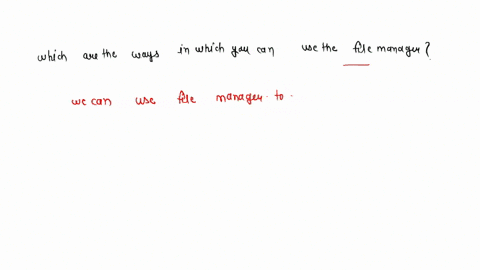 which are the ways in which you can use the file manager?
we can use file manager. to.